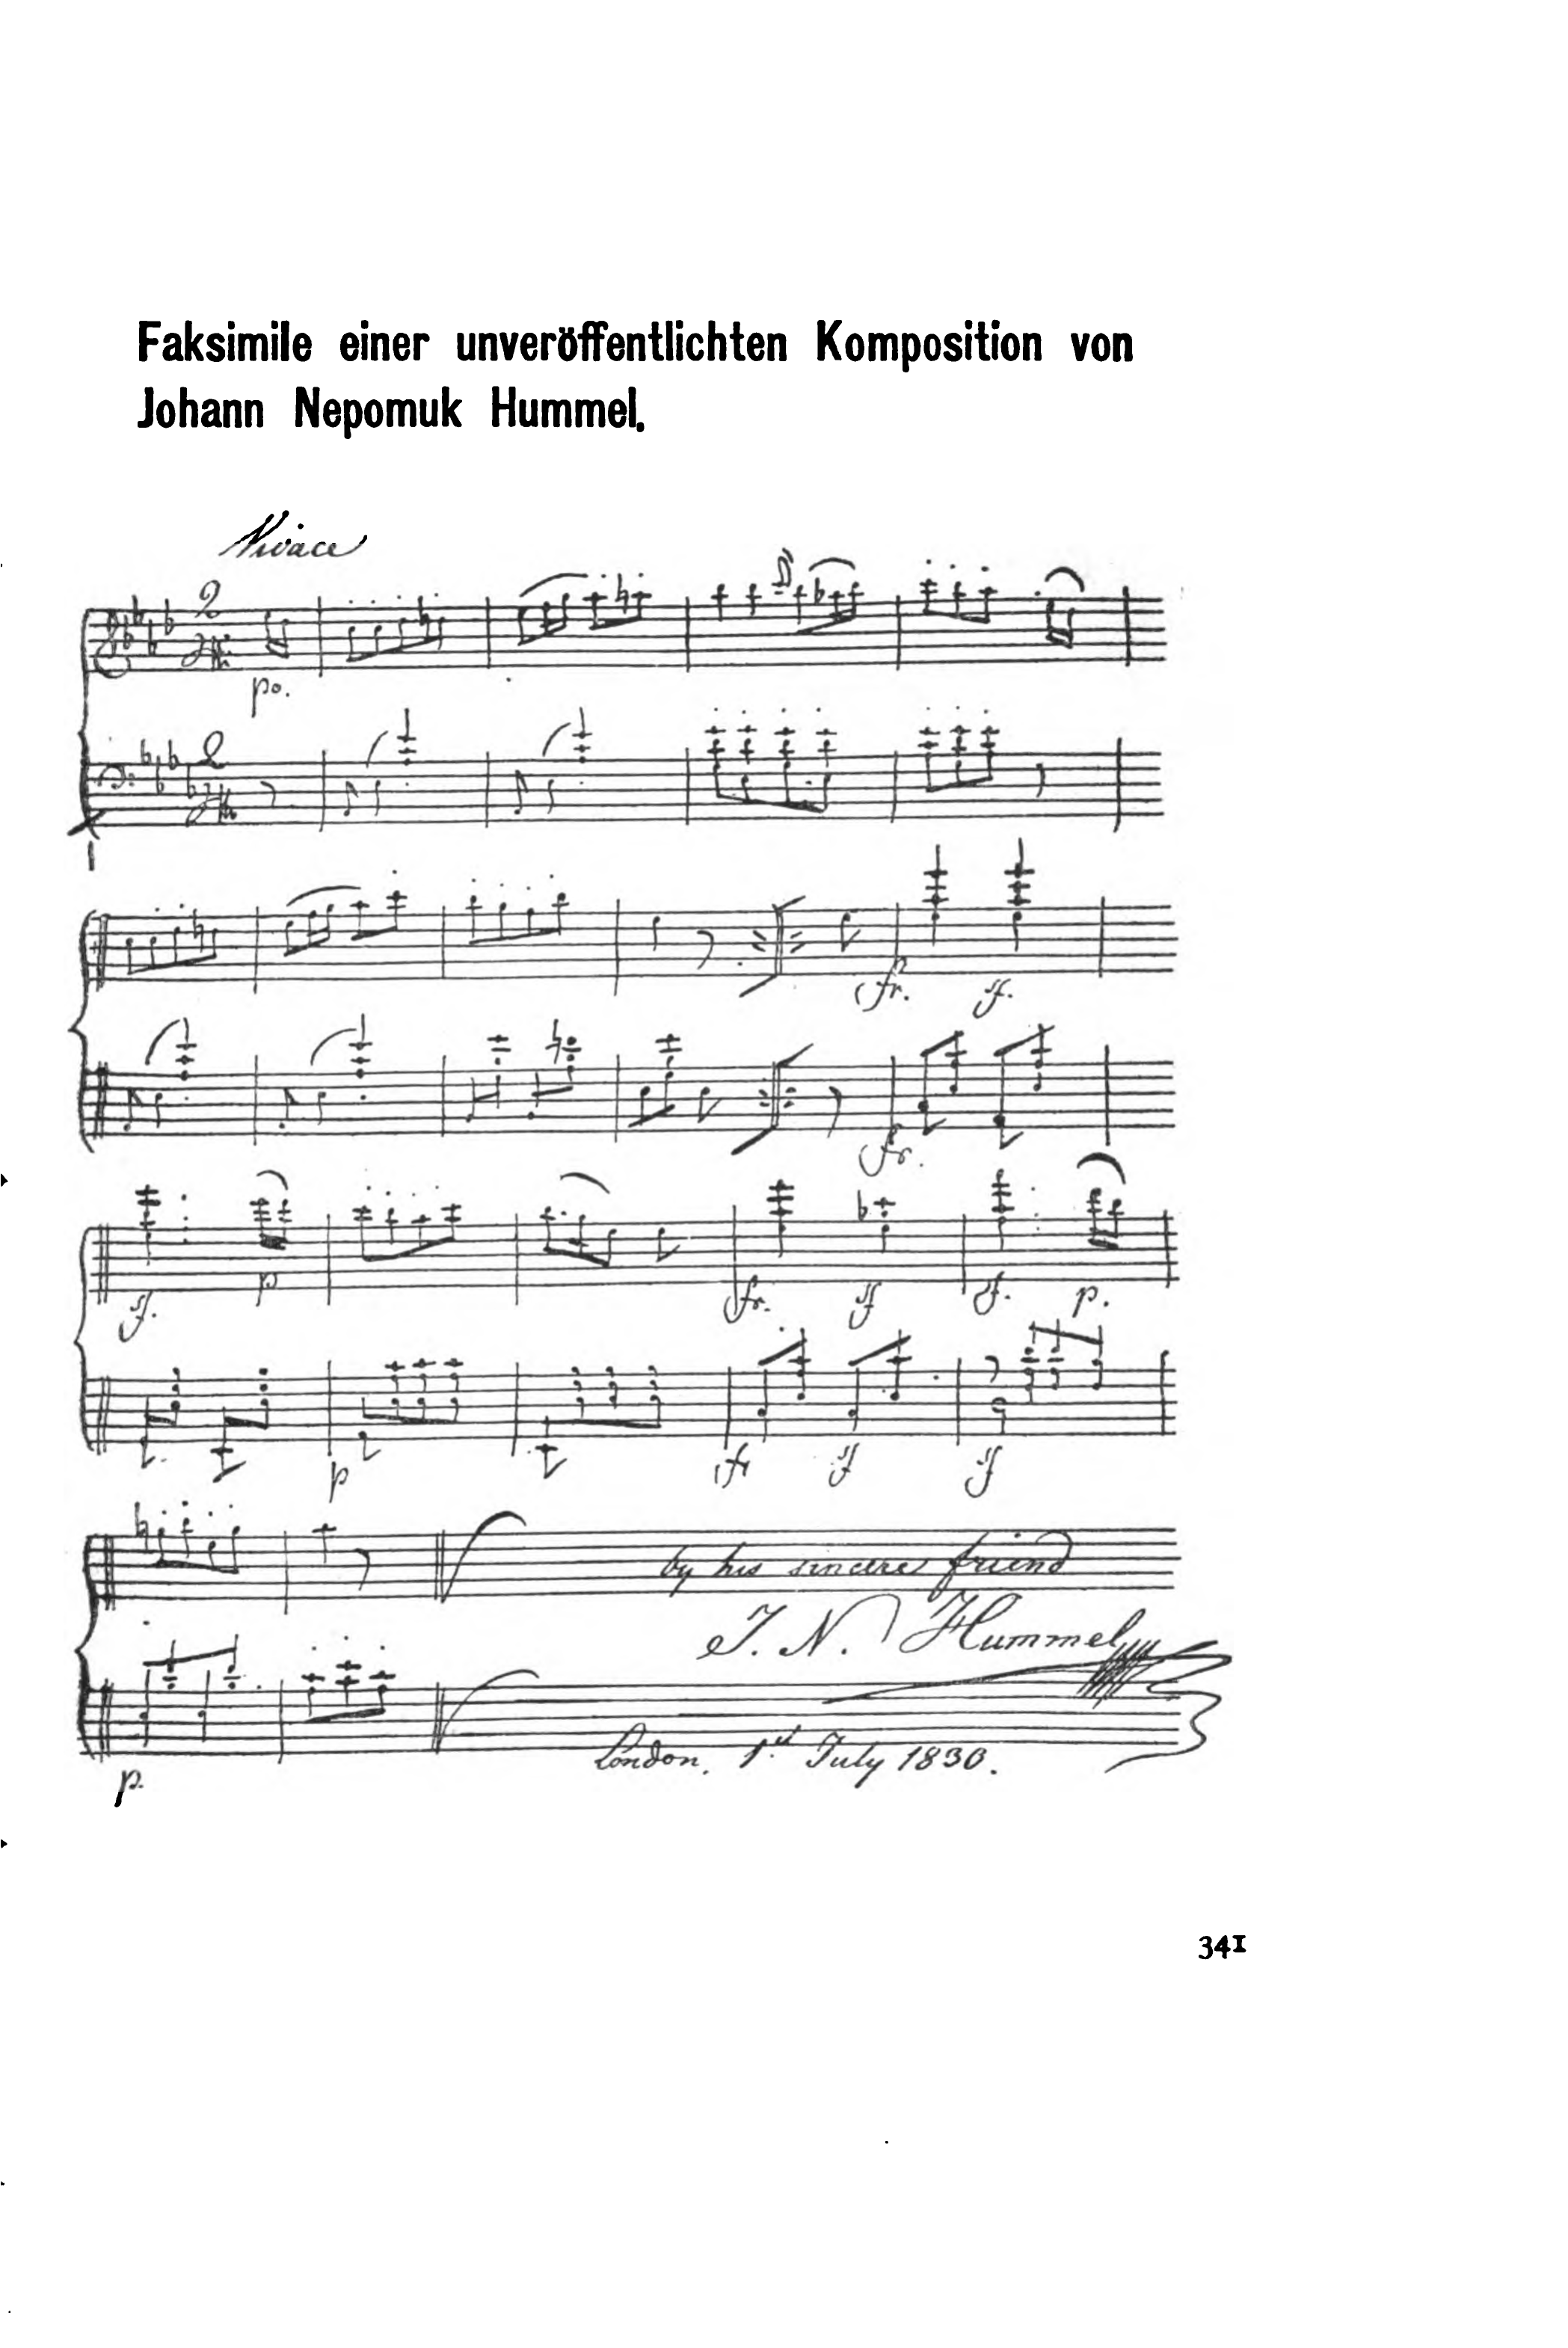 Faksimile einer unveröffentlichten Komposition von
Johann Nepomuk Hummel.
Vivace
2
po.
2
fr. sf.
fr.
sf. p fr. sf sf. p.
p fr sf sf
by his sincere friend
J. N. Hummel
p.
London, 1st July 1830.
341